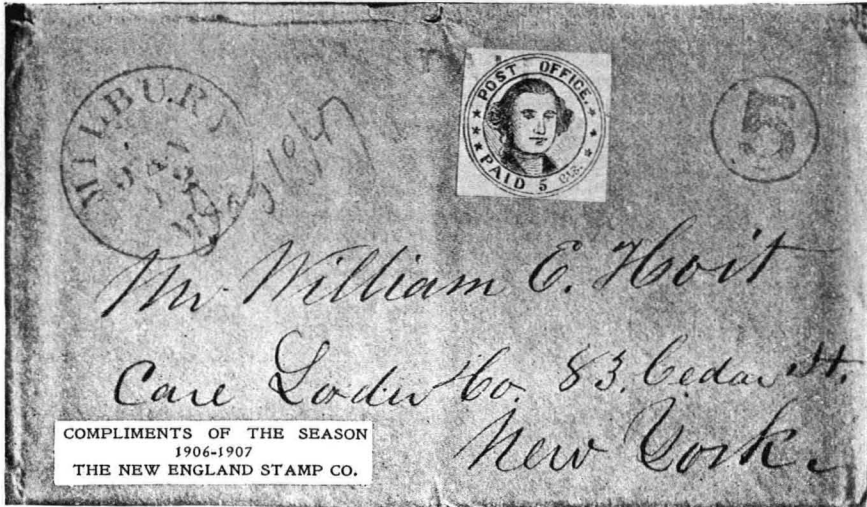 MILBURY
POST OFFICE.
PAID 5 Cts.
5
Mr William E. Hoit
Care Co. 83. Cedar St.
New York.
COMPLIMENTS OF THE SEASON
1906-1907
THE NEW ENGLAND STAMP CO.